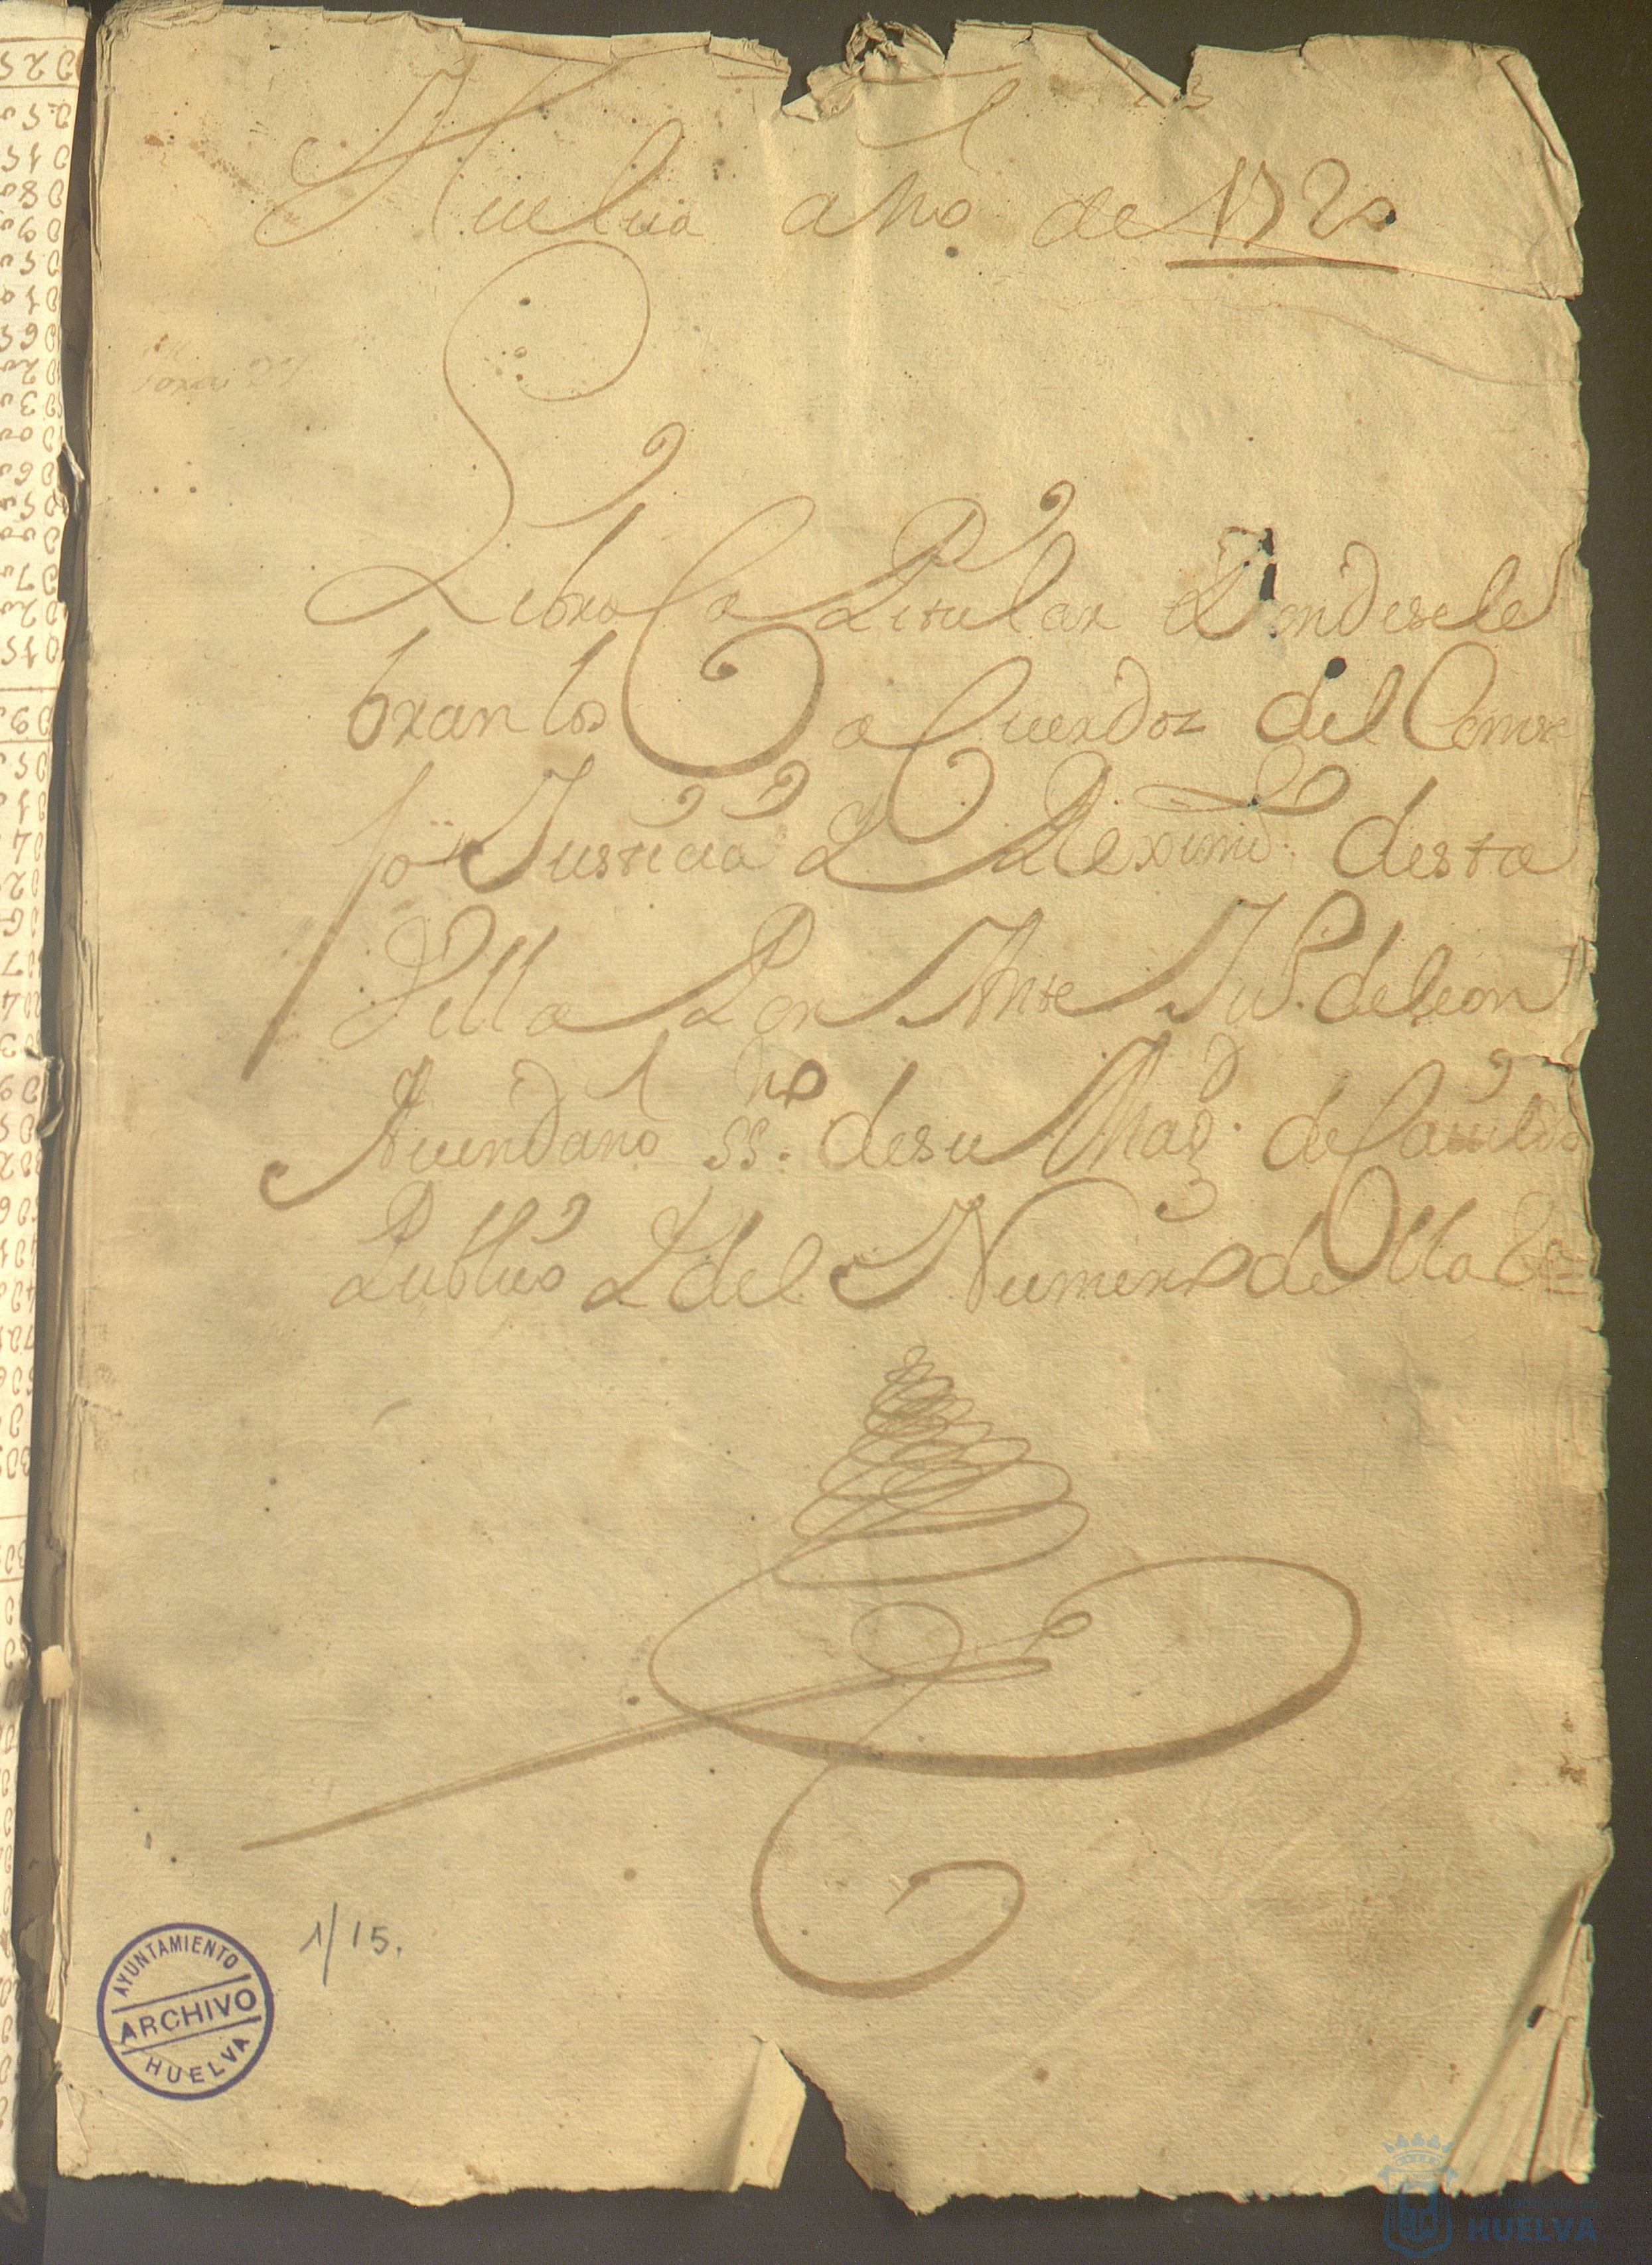 Huelua año de 1720
Libro Capitular Donde sele
bran los acuerdos del Conse
jo Justicia Y Reximio desta
Villa Por Ante Ju.º de leon
Auendaño ss.no de su Mag.d de Cauildo
Publico Y del Numero de lla
1/15.
AYUNTAMIENTO
ARCHIVO
HUELVA
HUELVA